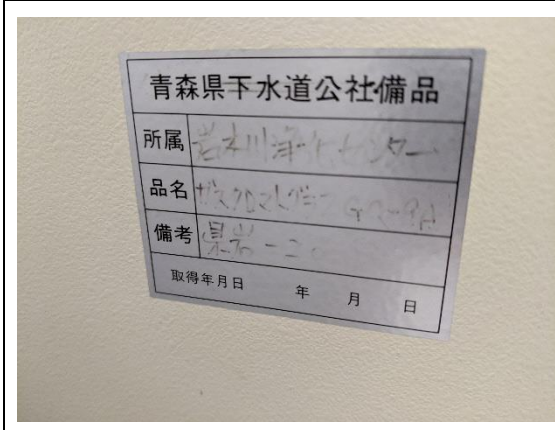 青森県下水道公社備品
所属 岩木川浄化センター
品名 ガスクロマトグラフ GC-9A
備考 県岩-20
取得年月日 年 月 日